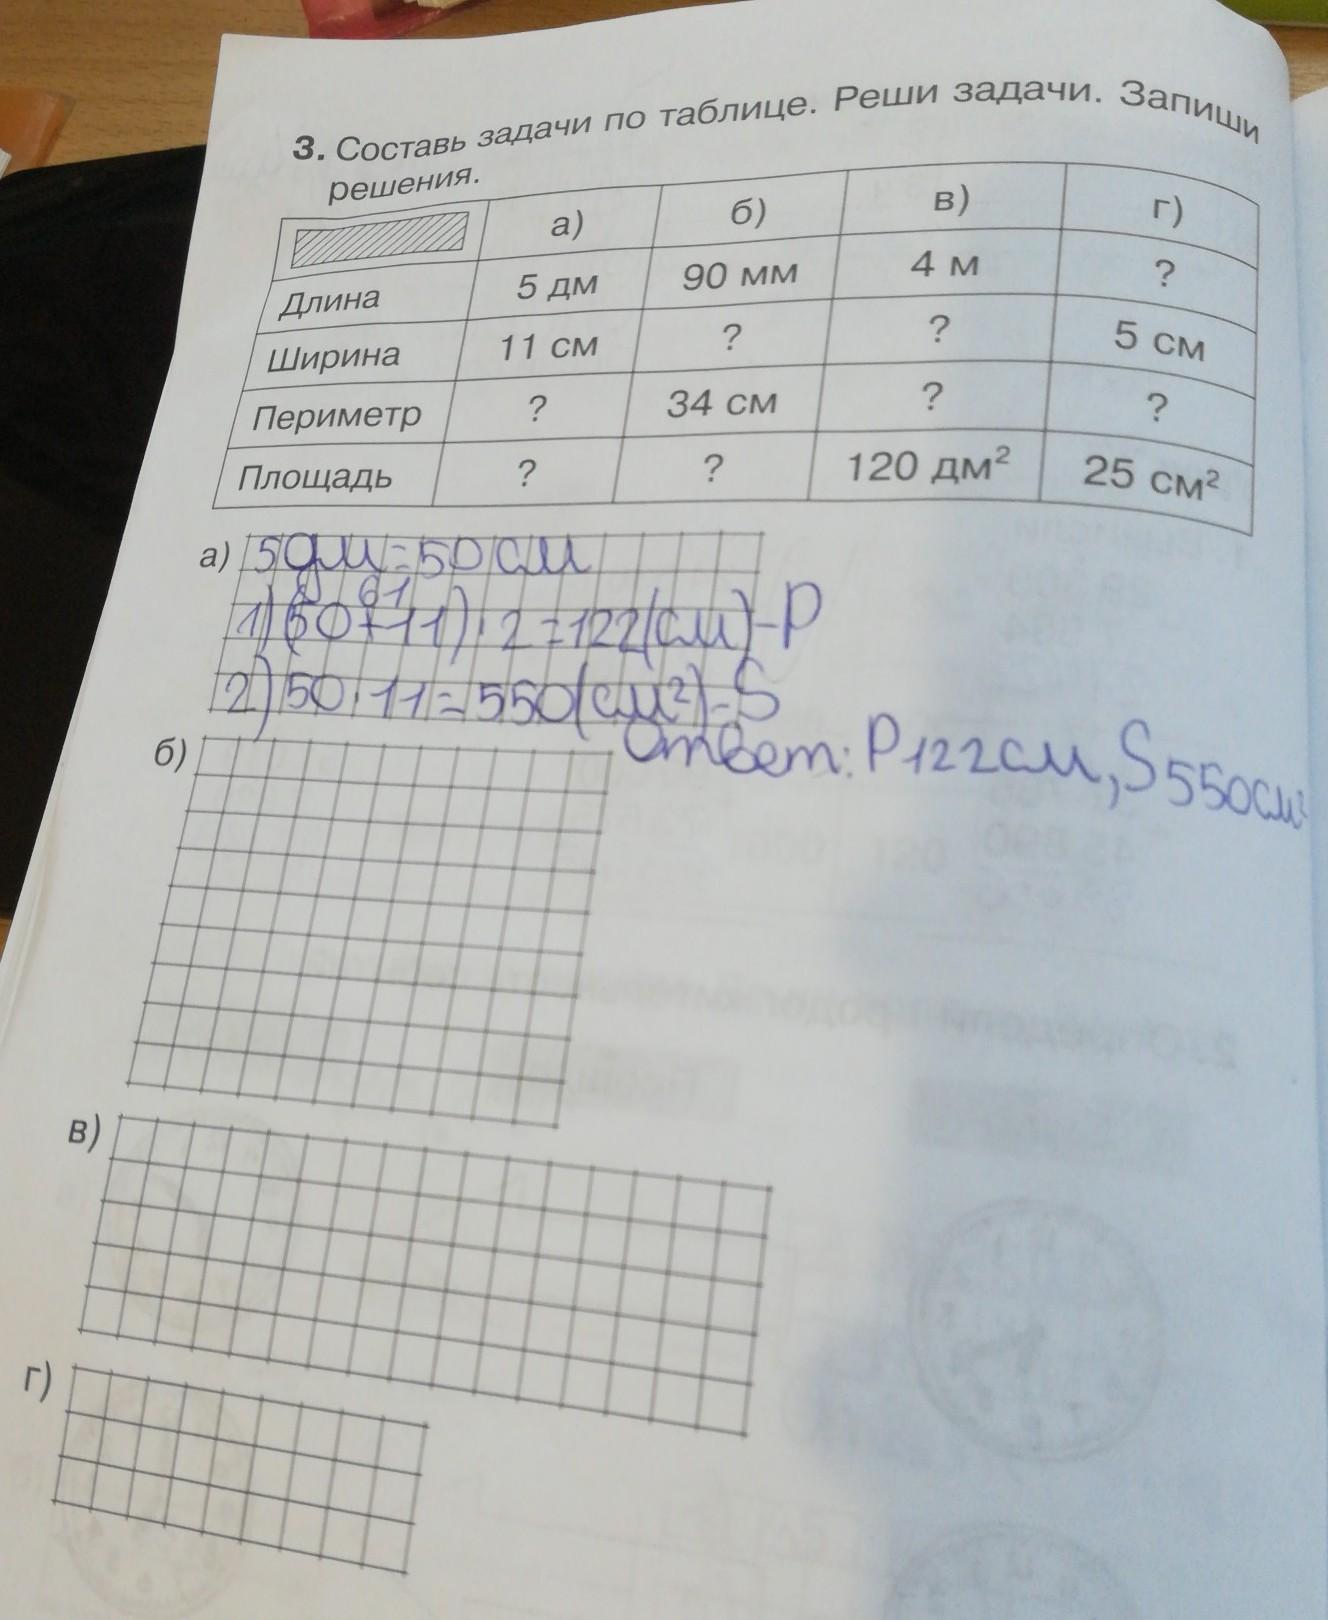 3. Составь задачи по таблице. Реши задачи. Запиши
решения.
а) б) в) г)
Длина 5 дм 90 мм 4 м ?
Ширина 11 см ? ? 5 см
Периметр ? 34 см ? ?
Площадь ? ? 120 дм² 25 см²
а) 5дм=50см
61
1)(50+11)·2=122(см)-P
2)50·11=550(см²)-S
Ответ: P122см, S550см²
б)
в)
г)